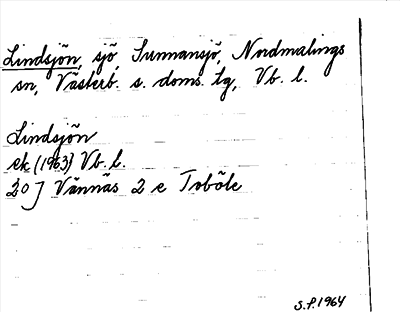 Lindsjön, sjö, Sunnansjö, Nordmalings
sn, Västerb. s. doms. tg, Vb. l.
Lindsjön
ek (1963) Vb. l.
20 J Vännäs 2 e Toböle
S.P. 1964